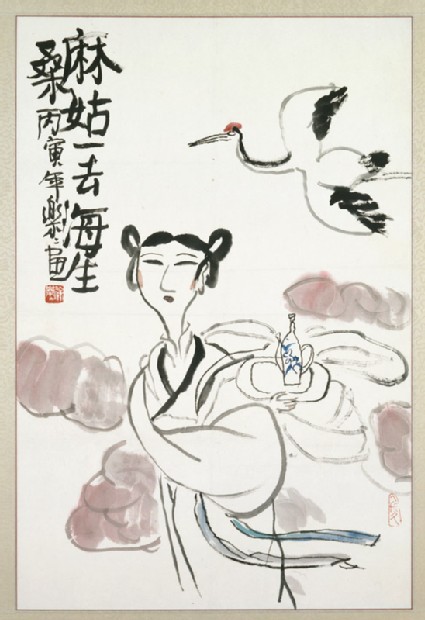 麻姑一去海生
桑丙寅年樂画